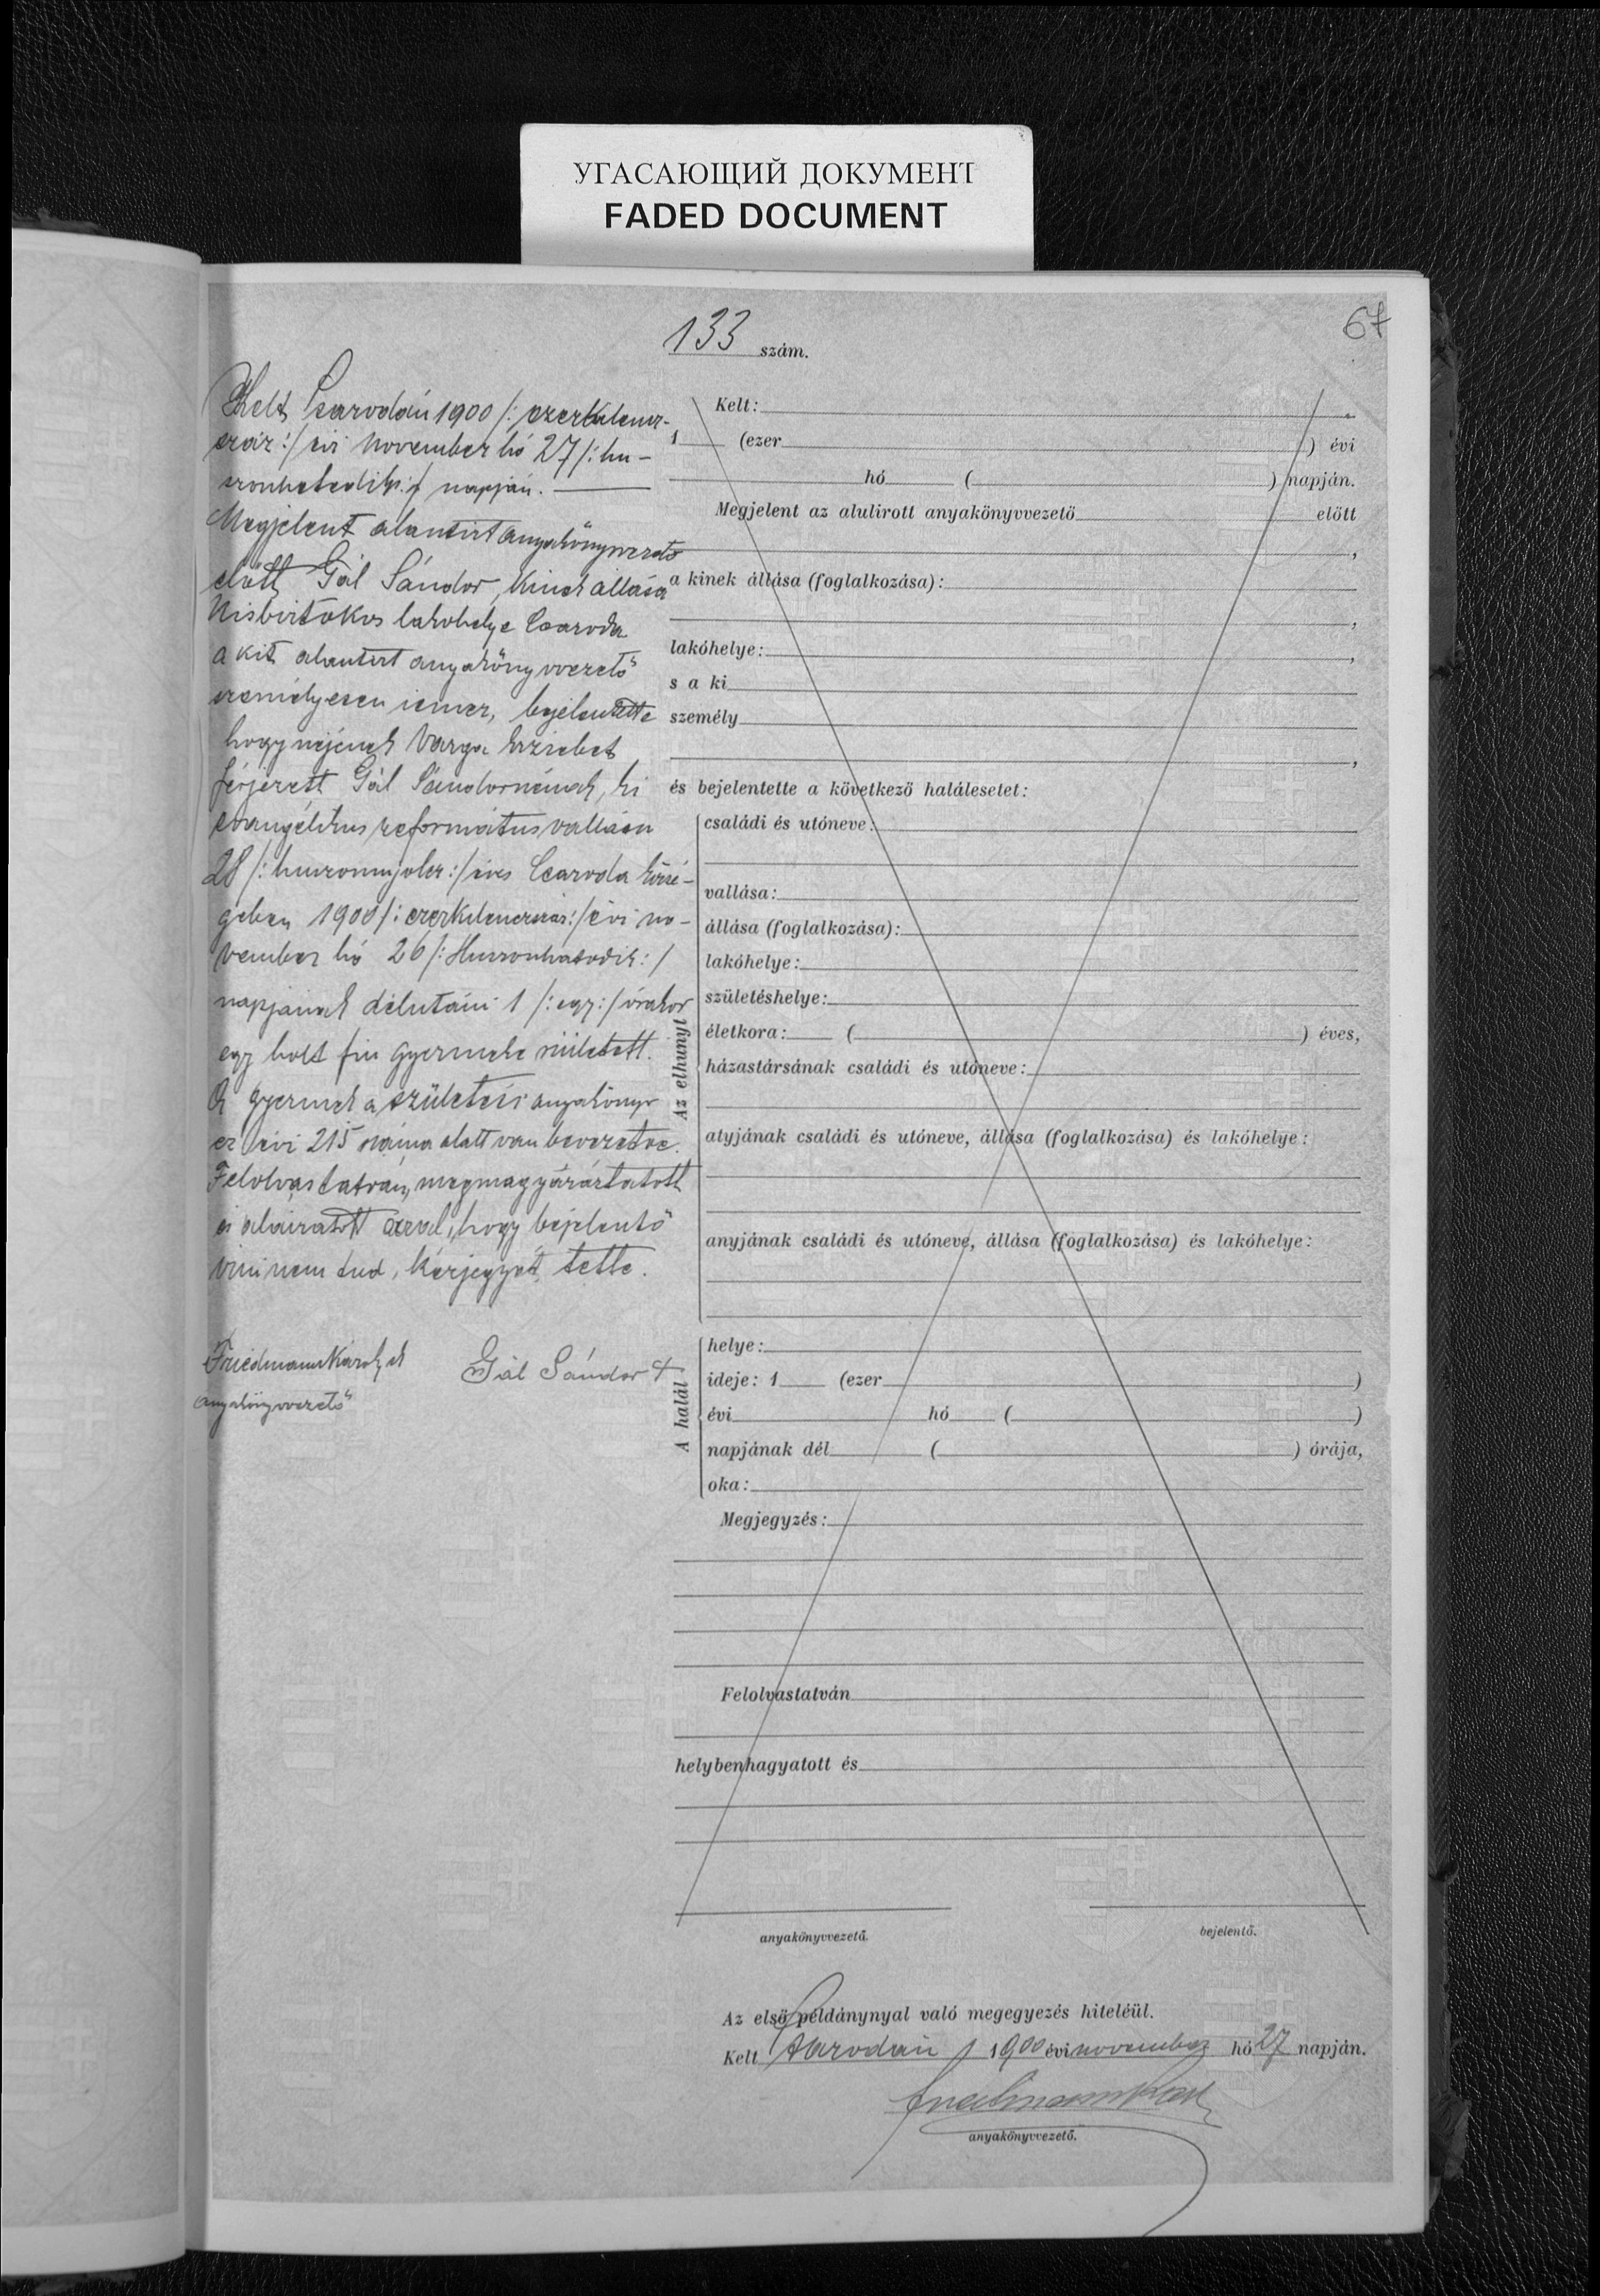 УГАСАЮЩИЙ ДОКУМЕНТ
FADED DOCUMENT
67
133 szám.
Kelt Csarodán 1900 /: ezerkilencz-
száz :/ évi november hó 27 /: hu-
szonhetedik :/ napján.
Megjelent alantirt anyakönyvvezető
előtt Gál Sándor, kinek állása
kisbirtokos lakohelye Csaroda
a kit alantirt anyakönyvvezető
személyesen ismer, bejelentette
hogy nejének Varga Erzsébet
férjezett Gál Sándornénak, ki
evangélikus református vallásu
28 /: huszonnyolcz :/ éves Csaroda közsé-
gében 1900 /: ezerkilenczszáz :/ évi no-
vember hó 26 /: Huszonhatodik :/
napjának délutáni 1 /: egy :/ órakor
egy holt fiu gyermeke született.
A gyermek a születési anyakönyv
ez évi 215 száma alatt van bevezetve.
Felolvastatván, megmagyaráztatott
és aláiratott azzal, hogy bejelentő
irni nem tud, kézjegyét tette.
Friedmann Károly sk
anyakönyvvezető
Gál Sándor +
Kelt:
1 (ezer ) évi
hó ( ) napján.
Megjelent az alulirott anyakönyvvezető előtt
,
a kinek állása (foglalkozása):
,
lakóhelye: ,
s a ki
személy
,
és bejelentette a következő halálesetet:
Az elhunyt
családi és utóneve:
vallása:
állása (foglalkozása):
lakóhelye:
születéshelye:
életkora: ( ) éves,
házastársának családi és utóneve:
atyjának családi és utóneve, állása (foglalkozása) és lakóhelye:
anyjának családi és utóneve, állása (foglalkozása) és lakóhelye:
A halál
helye:
ideje: 1 (ezer )
évi hó ( )
napjának dél ( ) órája,
oka:
Megjegyzés:
Felolvastatván
helybenhagyatott és
anyakönyvvezető.
bejelentő.
Az első példánynyal való megegyezés hiteléül.
Kelt Csarodán 1900 évi november hó 27 napján.
Friedmann Károly
anyakönyvvezető.